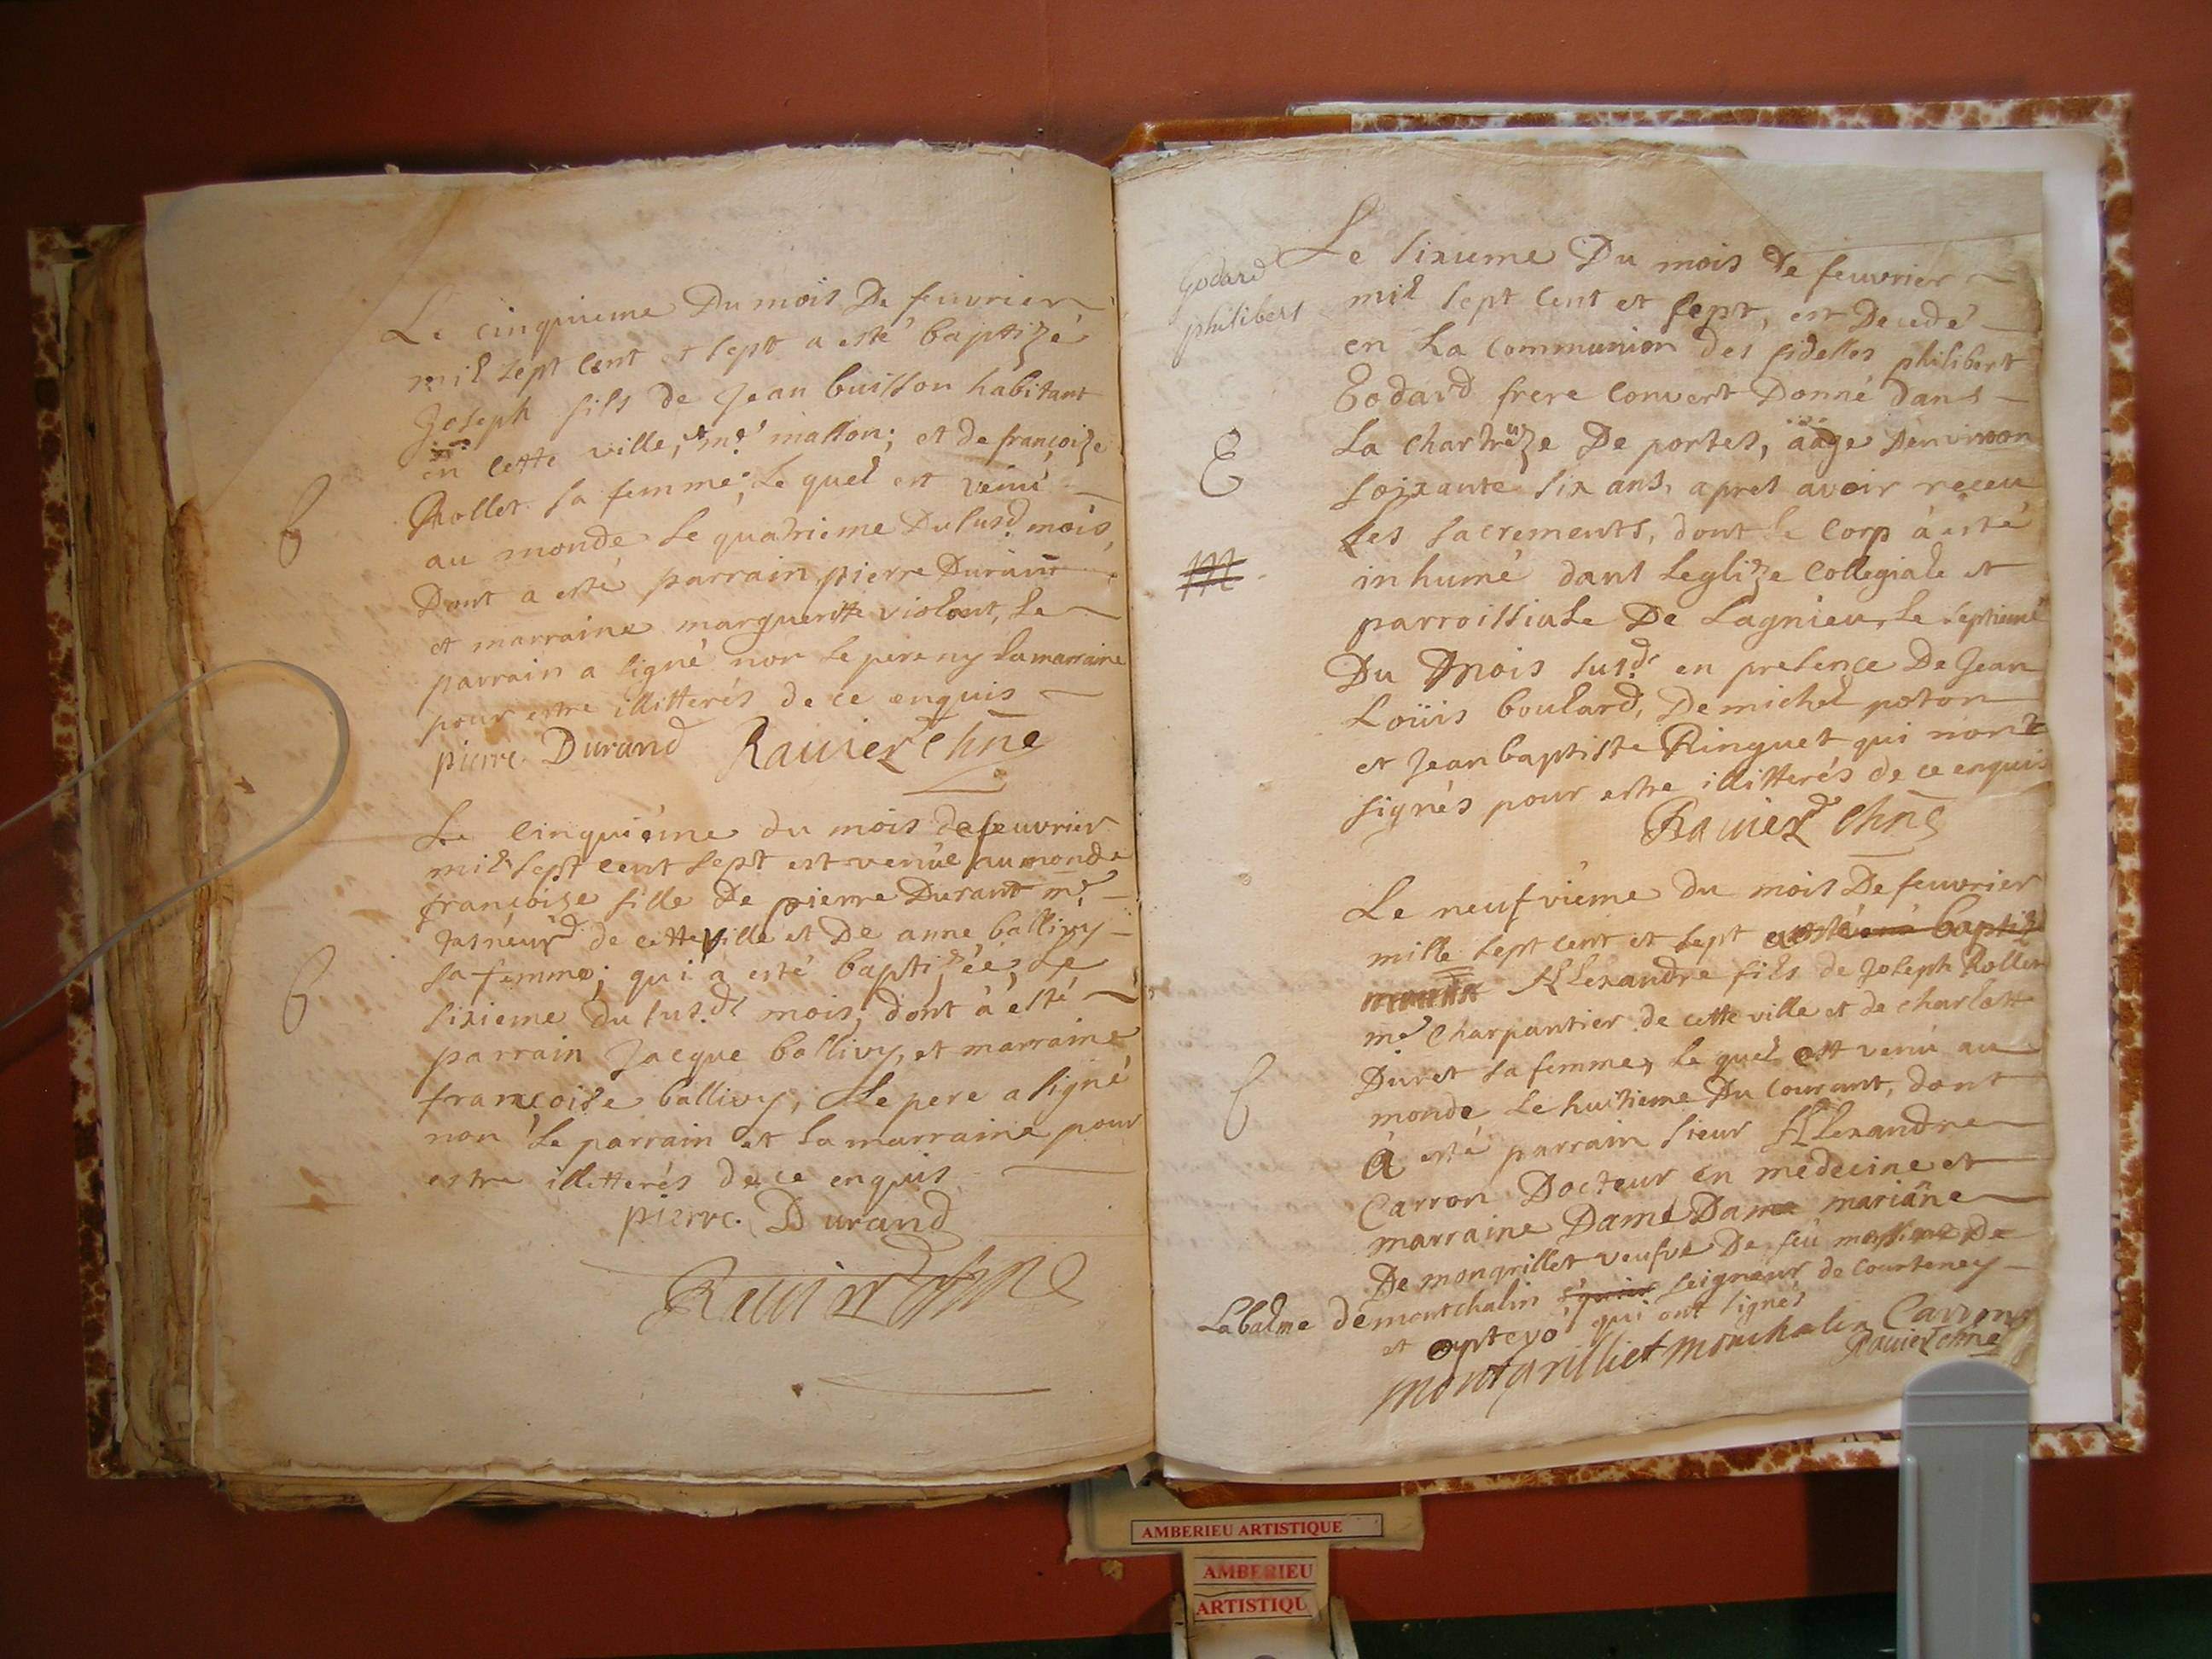 Le cinquieme Du mois De feuvrier
mil sept cent et sept a esté baptizé
Joseph fils de Jean buisson habitant
en cette ville, mᵉ masson; et de françoize
Rollet sa femme; Le quel est venu
au monde Le quatrieme Du susd. mois,
Dont a esté parrain, pierre Durant
et marraine margueritte violent, Le
parrain a signé non Le pere ny La marraine
pour estre illitterés de ce enquis
pierre Durand Ravier Chne
b
Le Cinquiéme du mois de feuvrier
mil sept cent sept est venüe au monde
françoize fille De pierre Durant mᵉ
de cette ville et De anne ballivy
sa femme; qui a esté baptizée, Le
sixieme du susd. mois, dont à esté
parrain Jacque ballivy, et marraine
françoise ballivy, Le pere a signé
non Le parrain et La marraine pour
estre illitterés de ce enquis
pierre Durand
Ravier Chne
b
Godard
philibert
Le sixieme Du mois de feuvrier
mil sept cent et sept, est Decedé
en La Communion des fidelles philibert
Godard frere Convert Donné dans
La chartrëuze De portes, aage Denviron
soixante six ans, apres avoir receu
Les sacrements, dont le Corp à esté
inhumé dans Leglize Collegiale et
parroissiale De Lagnieu, Le septieme
Du mois susd. en presence De Jean
Loüis boulard, De michel poton
et Jean baptiste Ringuet qui nont
signés pour estre illitterés de ce enquis
Ravier Chne
E
m
Le neufvieme du mois De feuvrier
mille sept cent et sept baptizé
Alexandre fils de Joseph Rollet
mᵉ Charpantier de cette ville et de charlotte
Duret sa femme, Le quel est venu au
monde Le huitieme Du Courant, dont
à esté parrain sieur Alexandre
Carron Docteur en medecine et
marraine Dame Dame mariane
De mongrillet veufve De feu messire De
Labalme de montchalin seigneur de Courteney
et optevo, qui ont signés
montgrilliet monchalin Carron
Ravier Chne
b
AMBERIEU ARTISTIQUE
AMBERIEU
ARTISTIQU